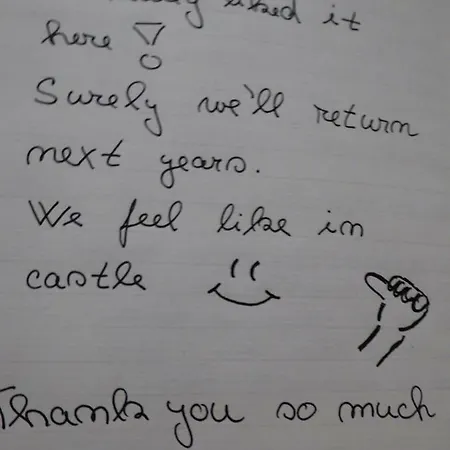 liked it
here!
Surely we'll return
next years.
We feel like in
castle
Thanks you so much